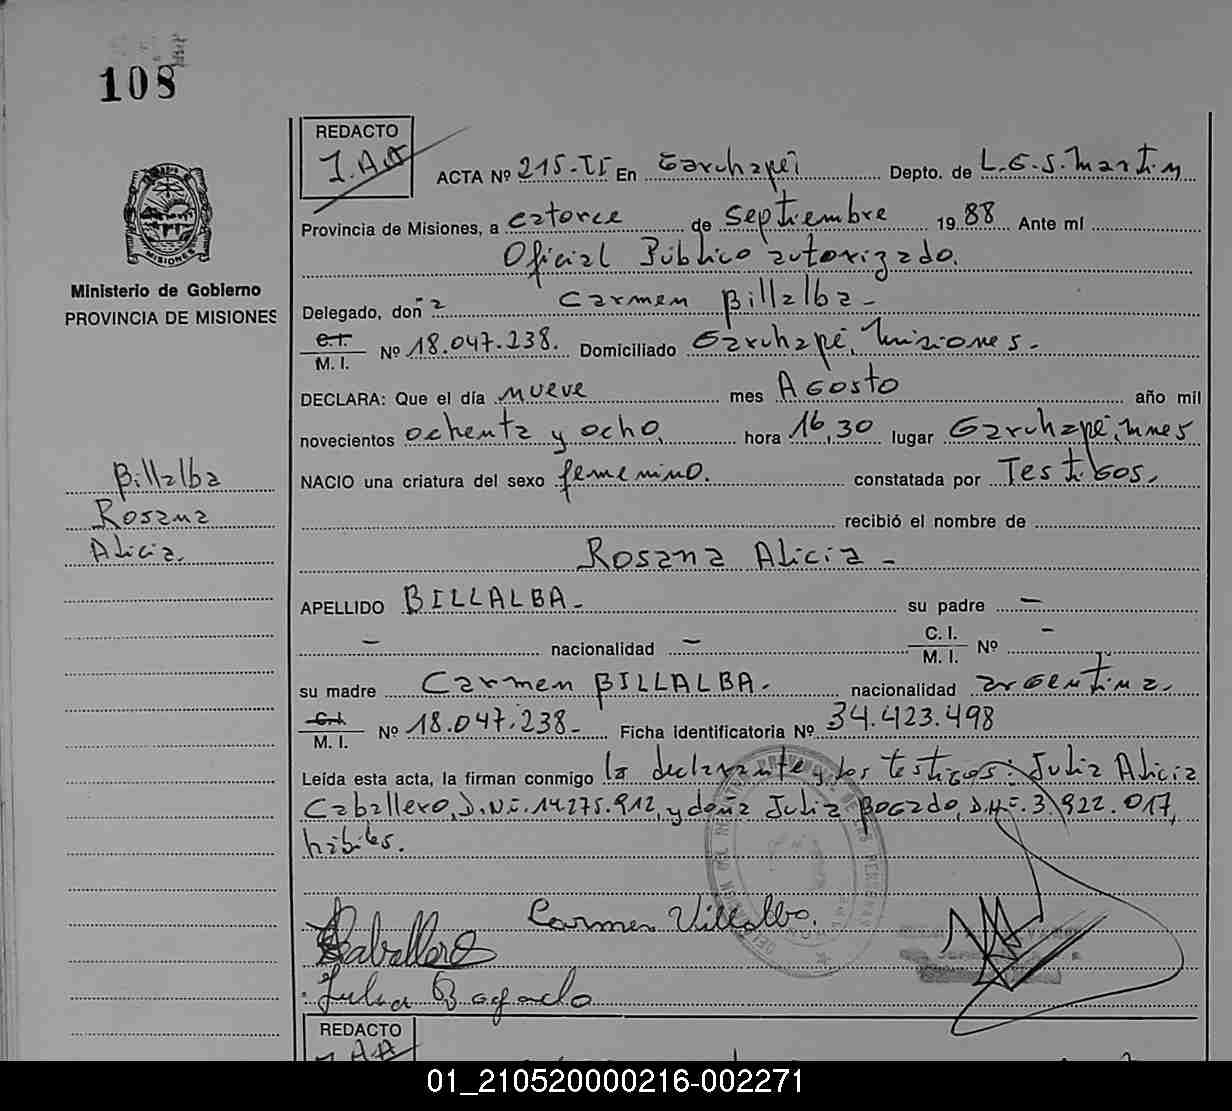 108
REDACTO
J.A.A
ACTA Nº 215-TI En Garuhapeí Depto. de L.G.S.Martin
Provincia de Misiones, a catorce de septiembre 1988 Ante mí
Oficial Público autorizado.
MISIONES
Ministerio de Gobierno
PROVINCIA DE MISIONES
Delegado, doña Carmen Billalba -
C.I.
M. I. Nº 18.047.238. Domiciliado Garuhapé, Misiones.
DECLARA: Que el día nueve mes Agosto año mil
novecientos ochenta y ocho, hora 16,30 lugar Garuhapé, Mnes
NACIO una criatura del sexo femenino. constatada por Testigos.
Billalba
Rosana
Alicia.
recibió el nombre de
Rosana Alicia -
APELLIDO BILLALBA - su padre -
- nacionalidad - C. I.
M. I. Nº -
su madre Carmen BILLALBA. nacionalidad argentina.
C.I.
M. I. Nº 18.047.238- Ficha identificatoria Nº 34.423.498
Leída esta acta, la firman conmigo la declarante y los testigos: Julia Alicia
Caballero, D.N.i. 14.275.912, y doña Julia Bogado, D.N.i. 3.922.017,
hábiles.
Carmen Villalba.
Caballero
Julia Bogado
REDACTO
01_210520000216-002271